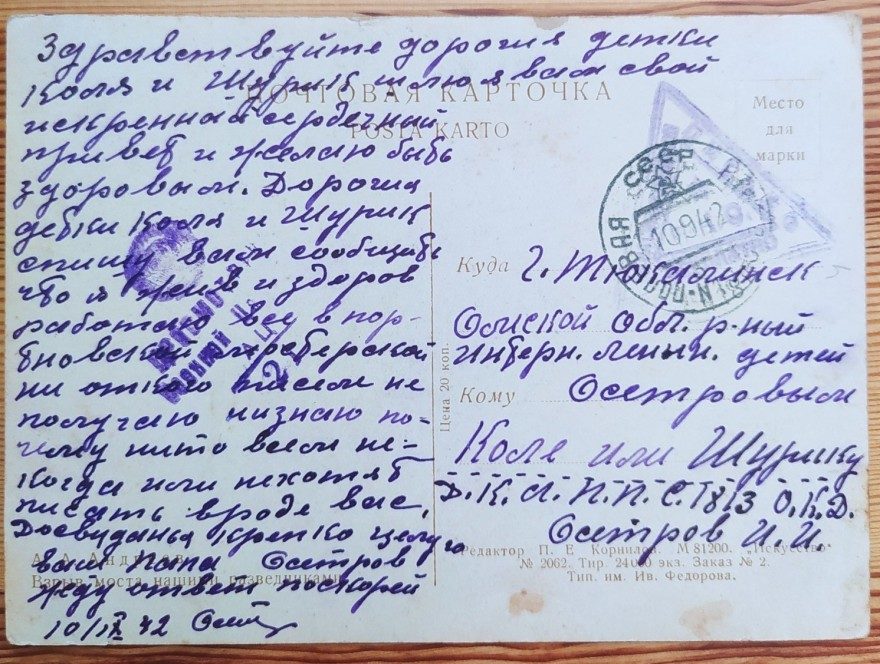 Здравствуйте дорогия детки
Коля и Шурик шлю я вам свой
искренный сердечный
привет и желаю быть
здоровыми. Дорогия
детки Коля и Шурик
спишу вам сообщить
что я жив и здоров
работаю все в пор-
тновской мастерской
ни откого писем не
получаю низнаю по-
чему нито вам не-
когда или нехотят
писать вроде вас.
Досвиданья крепко целую
вам папа Осетров
жду ответ поскорей
10/IX 42
ПОЧТОВАЯ КАРТОЧКА
POSTA KARTO
Место
для
марки
СССР
10.9.42
ПОЛЕВАЯ
Военной
Куда г. Тюкалинск
Омской Обл. р-ный
интерн. Ленин. детей
Кому Осетровым
Коле или Шурику
Д.К.А. П.П.С. 1813 О.К.Д.
Осетров И. И.
Цена 20 коп.
Взрыв моста нашими разведчиками
Редактор П. Е. Корнилов. М 81200. „Искусство“
№ 2062. Тир. 24000 экз. Заказ № 2.
Тип. им. Ив. Федорова.